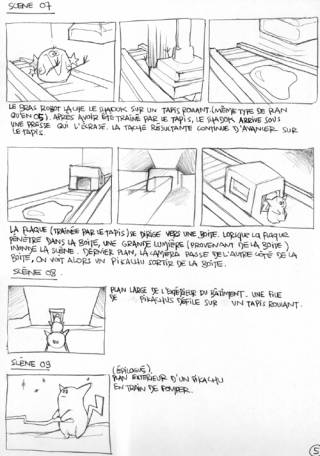 SCÈNE 07
LE BRAS ROBOT LACHE LE SHADOK SUR UN TAPIS ROULANT. (MÊME TYPE DE PLAN
QU'EN 05). APRÈS AVOIR ÉTÉ TRAÎNÉ PAR LE TAPIS, LE SHADOK ARRIVE SOUS
UNE PRESSE QUI L'ÉCRASE. LA TACHE RÉSULTANTE CONTINUE D'AVANCER SUR
LE TAPIS.
LA PLAQUE (TRAÎNÉE PAR LE TAPIS) SE DIRIGE VERS UNE BOITE. LORSQUE LA PLAQUE
PÉNÈTRE DANS LA BOITE, UNE GRANDE LUMIÈRE (PROVENANT DE LA BOITE)
INONDE LA SCÈNE. DERNIER PLAN, LA CAMÉRA PASSE DE L'AUTRE CÔTÉ DE LA
BOITE, ON VOIT ALORS UN PIKACHU SORTIR DE LA BOITE.
SCÈNE 08.
PLAN LARGE DE L'EXTÉRIEUR DU BÂTIMENT. UNE FILE
DE PIKACHUS DÉFILE SUR UN TAPIS ROULANT.
SCÈNE 09
(ÉPILOGUE).
PLAN EXTÉRIEUR D'UN PIKACHU
EN TRAIN DE POMPER.
5